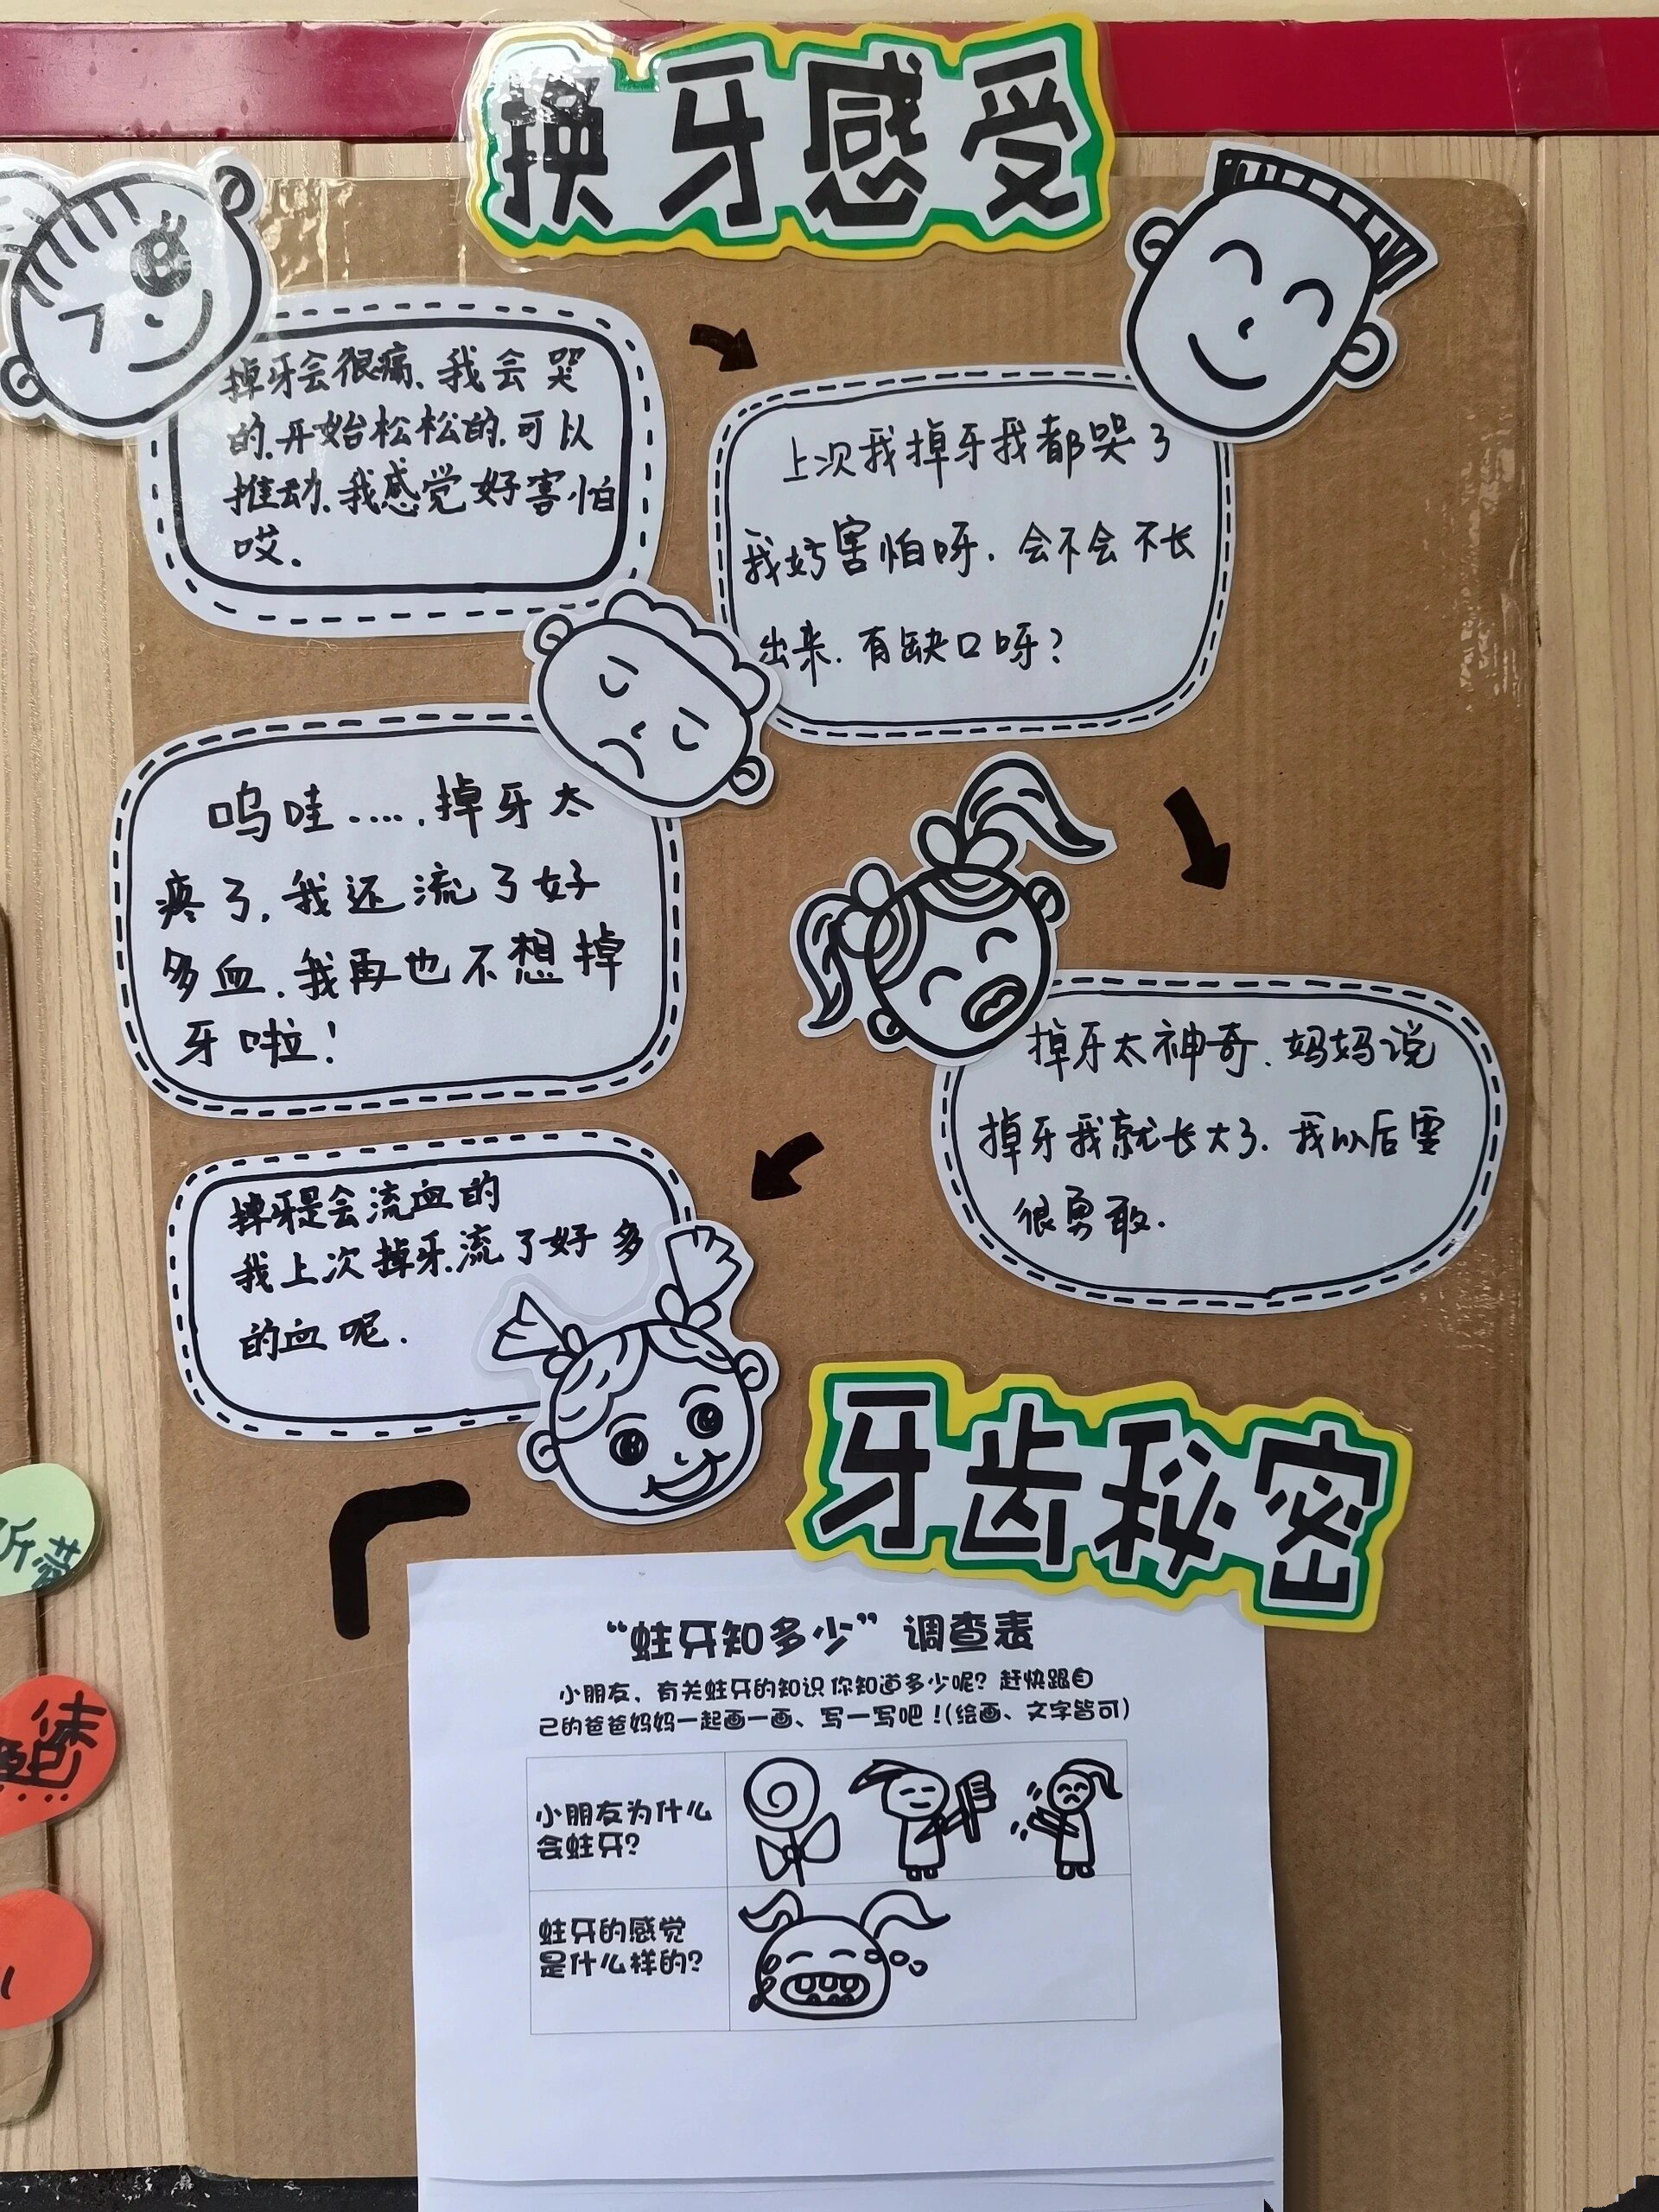 换牙感受
掉牙会很痛.我会哭
的.开始松松的.可以
推动.我感觉好害怕
哎.
上次我掉牙我都哭了
我好害怕呀.会不会不长
出来.有缺口呀?
呜哇.....掉牙太
疼了.我还流了好
多血.我再也不想掉
牙啦!
掉牙太神奇.妈妈说
掉牙我就长大了.我以后要
很勇敢.
掉牙是会流血的
我上次掉牙.流了好多
的血呢.
牙齿秘密
“蛀牙知多少”调查表
小朋友，有关蛀牙的知识你知道多少呢？赶快跟自
己的爸爸妈妈一起画一画、写一写吧！(绘画、文字皆可)
小朋友为什么
会蛀牙？
蛀牙的感觉
是什么样的？